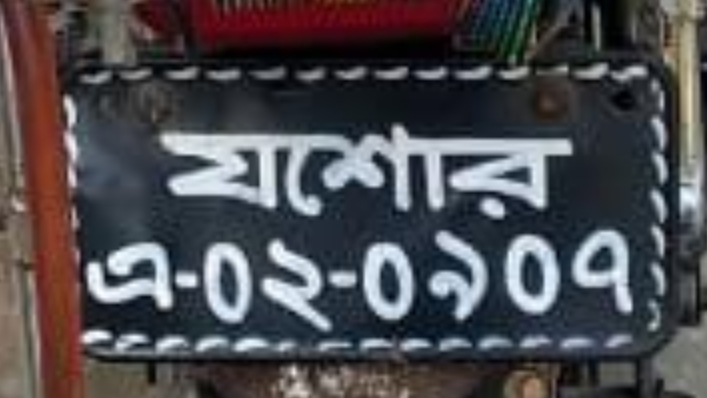 যশোর
এ-০২-০৯০৭